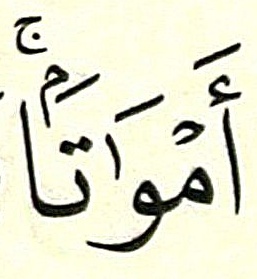 أَمْوَٰتَۢاۚ